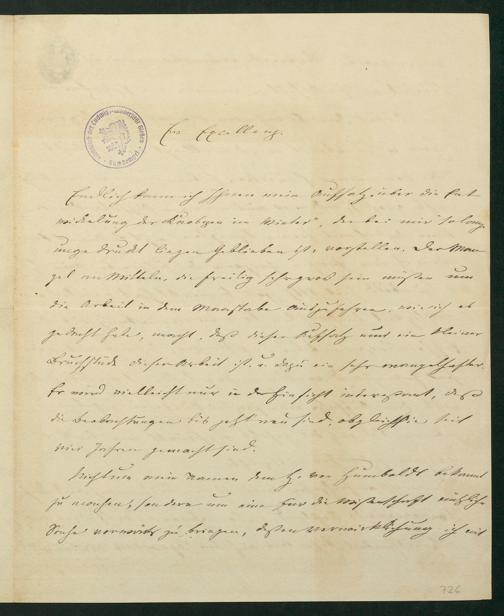 Ew Excellenz.
Endlich kann ich Ihnen mein Aufsatz über die Ent
wickelung der Knospen im Winter, der bei mir so lange
ungedruckt liegen geblieben ist, vorstellen. Der Man
gel an Mitteln, die freilig sehr groß sein müßen um
die Arbeit in dem Maasstabe auszuführen, wie ich es
gedacht habe, macht, daß dieser Aufsatz nur ein kleiner
Bruchstück dieser Arbeit ist, u. dazu ein sehr mangelhafter.
Er wird vielleicht nur in der Hinsicht interessant, daß
die Beobachtungen bis jetzt neu sind, obgleich sie seit
vier Jahren gemacht sind.
Nicht um mein Namen dem H. von Humboldt bekannt
zu machen, sondern um eine für die Wissenschaft nützliche
Sache vorwärts zu bringen, dessen Verwirklichung ich mit
726